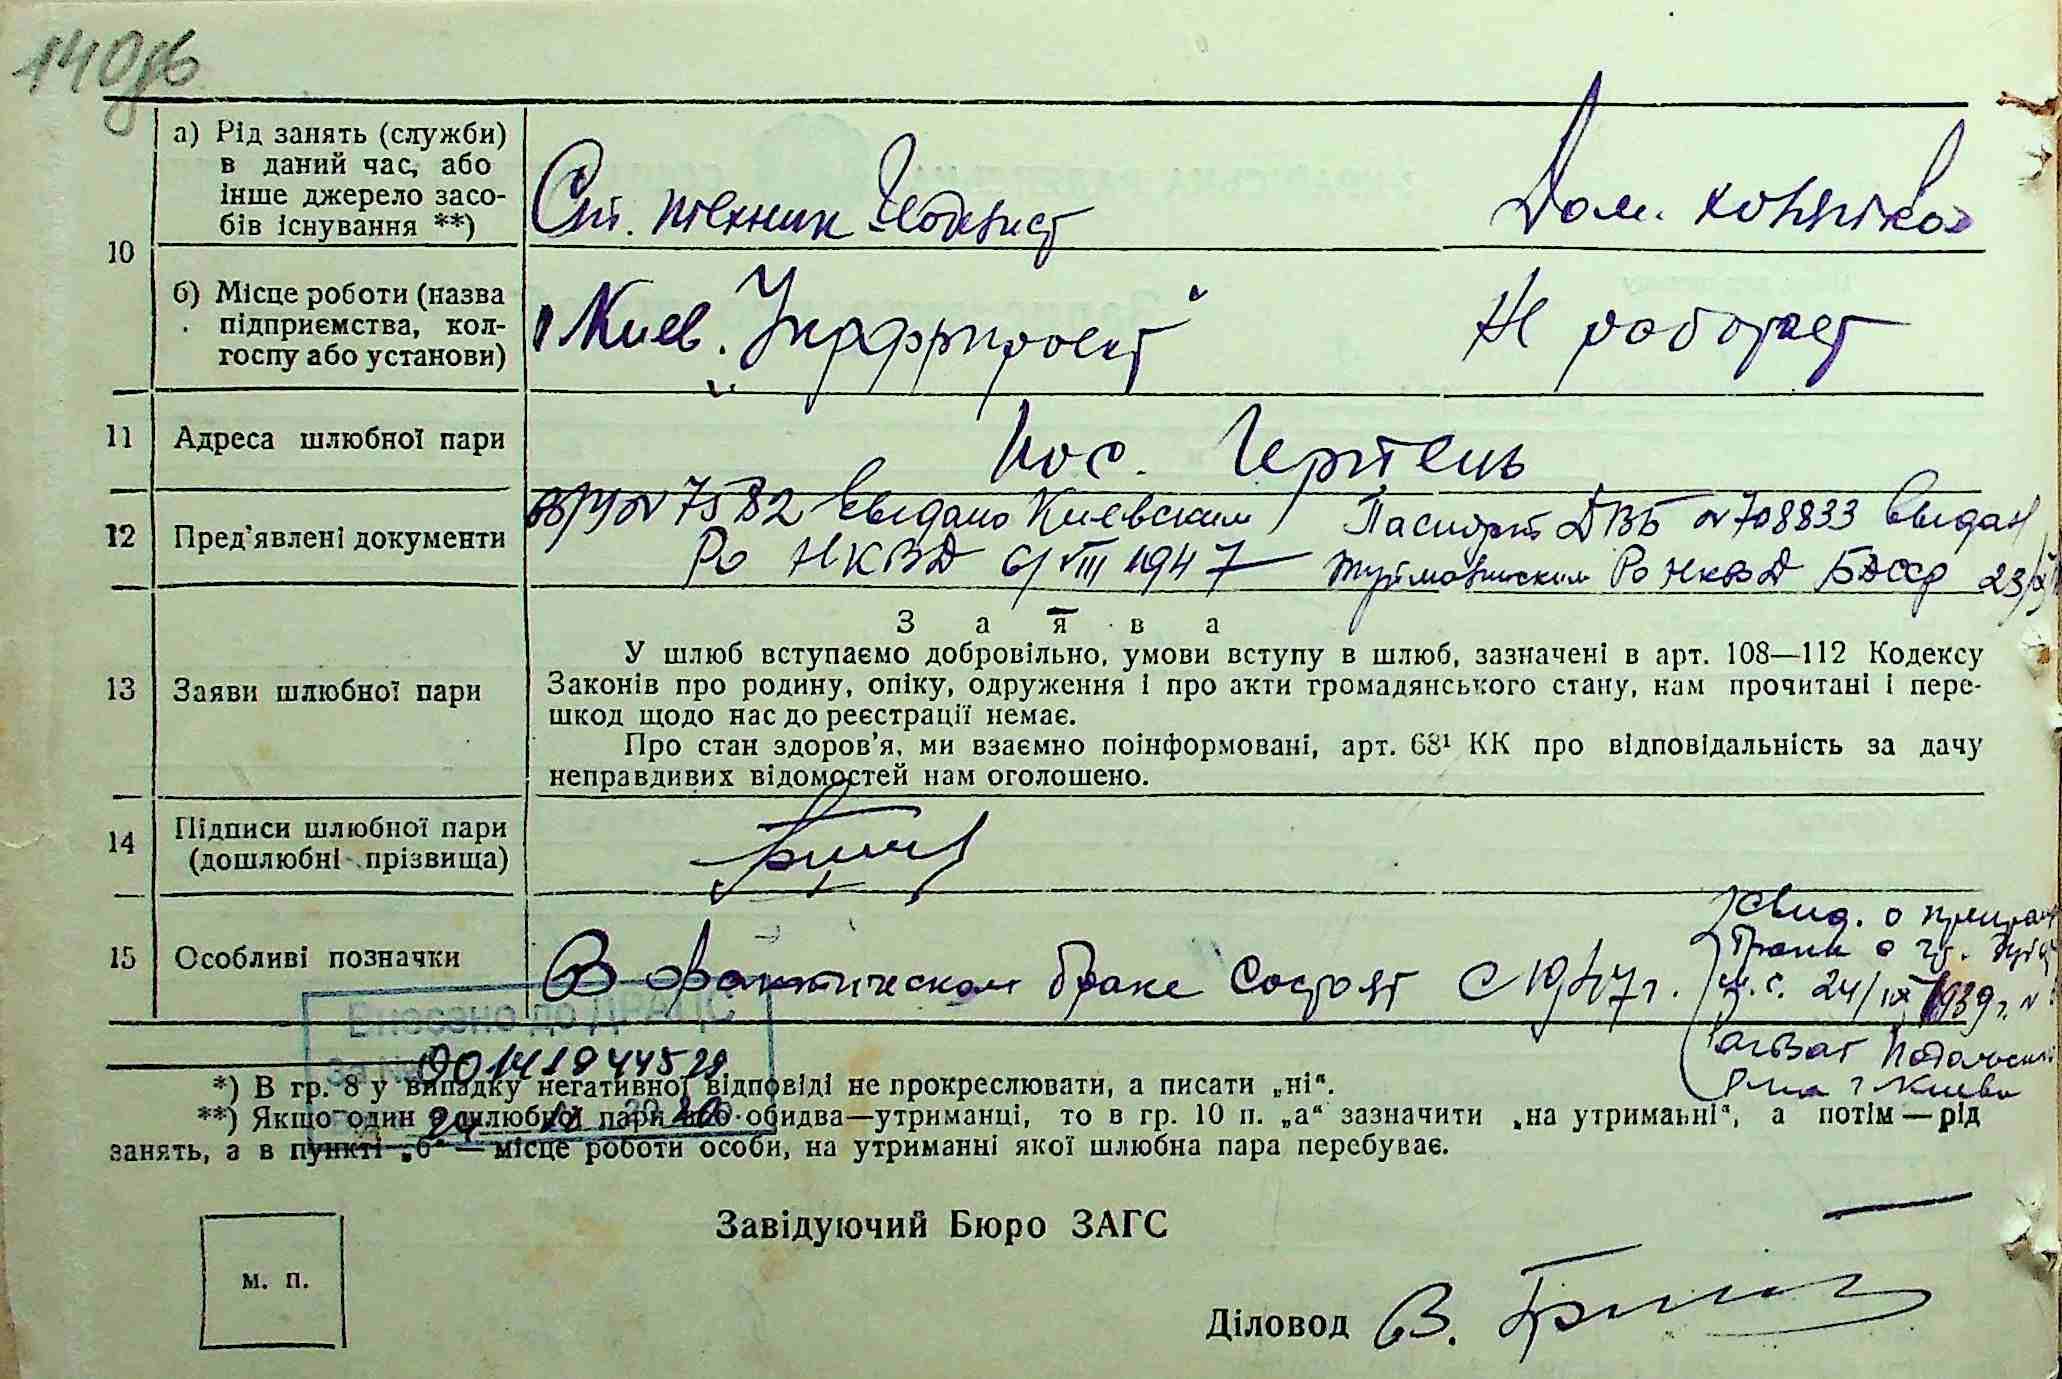 140
10
а) Рід занять (служби)
в даний час, або
інше джерело засо-
бів існування **)
Ст. техник Геодезист
Дом. хозяйка
б) Місце роботи (назва
підприємства, кол-
госпу або установи)
Киев. Укр проект"
Не работает
11
Адреса шлюбної пари
Пос. Чертень
12
Пред'явлені документи
№ 7582 выдано Киевским
Ро НКВД 6/VIII 1947
Паспорт ДВБ № 708833 выдан
Ро НКВД БАССР 23/
13
Заяви шлюбної пари
Заява
У шлюб вступаємо добровільно, умови вступу в шлюб, зазначені в арт. 108—112 Кодексу
Законів про родину, опіку, одруження і про акти громадянського стану, нам прочитані і пере-
шкод щодо нас до реєстрації немає.
Про стан здоров'я, ми взаємно поінформовані, арт. 68¹ КК про відповідальність за дачу
неправдивих відомостей нам оголошено.
14
Підписи шлюбної пари
(дошлюбні прізвища)
15
Особливі позначки
В фактическом браке состоят с 1947 г.
Свид. о
брака о
24/IX 1939 г. №
Загзаг Подольск
р-на г Киева
Внесено до ДРАЦС
за № 00141944529
*) В гр. 8 у випадку негативної відповіді не прокреслювати, а писати „ні".
**) Якщо один з шлюбної пари або обидва—утриманці, то в гр. 10 п. „а" зазначити „на утриманні", а потім — рід
занять, а в пункті „б" — місце роботи особи, на утриманні якої шлюбна пара перебуває.
Завідуючий Бюро ЗАГС
м. п.
Діловод В.